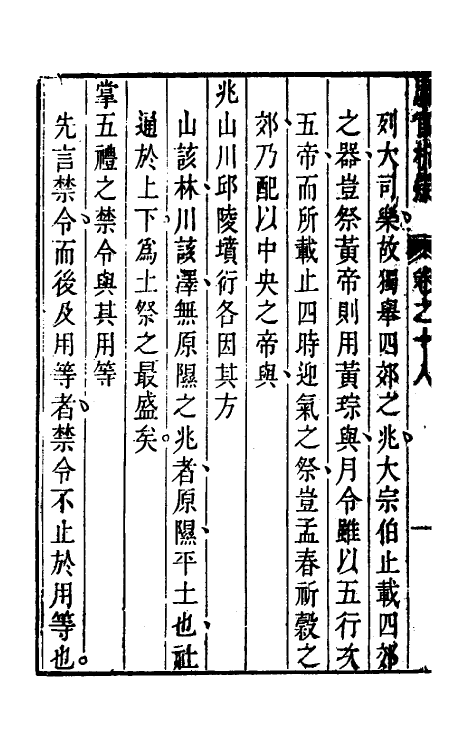 列大司樂故獨舉四郊之兆大宗伯止載四郊
之器豈祭黃帝則用黃琮與月令雖以五行次
五帝而所載止四時迎氣之祭豈孟春祈穀之
郊乃配以中央之帝與
兆山川邱陵墳衍各因其方
山該林川該澤無原隰之兆者原隰平土也社
通於上下爲土祭之最盛矣。
掌五禮之禁令與其用等
先言禁令而後及用等者禁令不止於用等也。
卷之十八
一